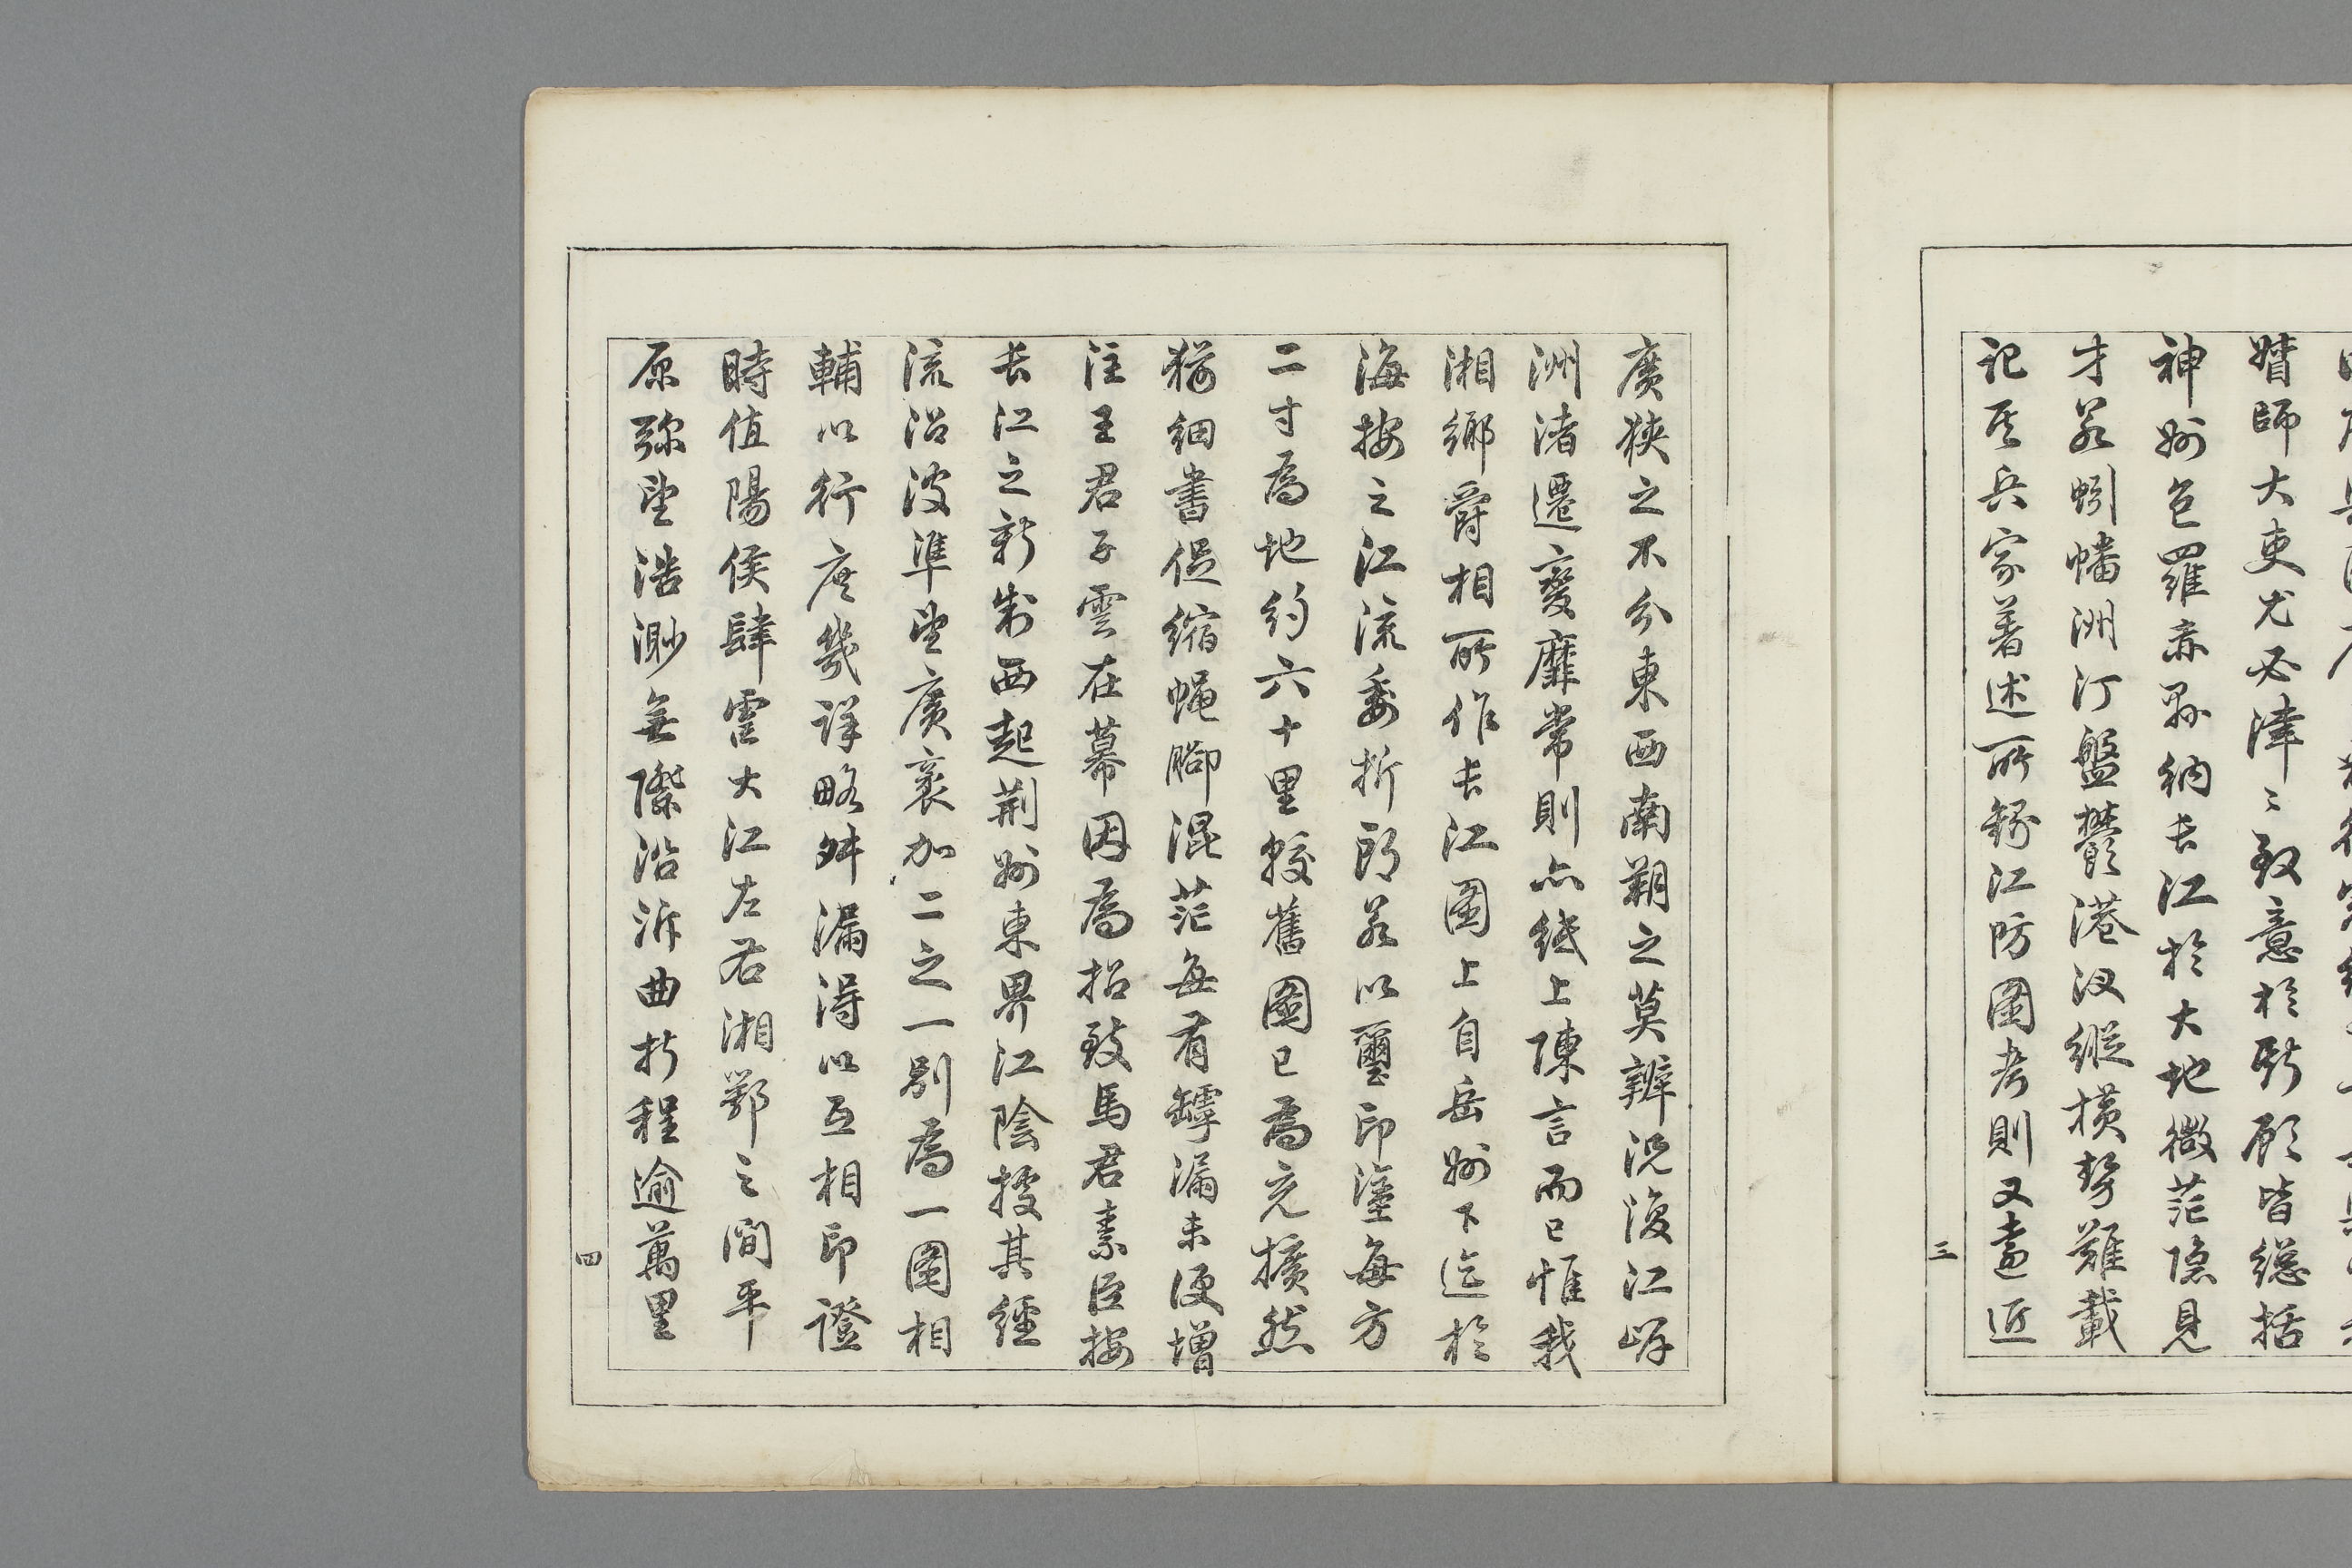 瞽師大吏尤必津〻致意於斯顧皆總括
神州包羅赤縣納長江於大地微茫隱見
才若蚓蟠洲汀盤鬱港汊縱橫勢難載
記至兵家著述所錄江防圖考則又遠近
三
廣狹之不分東西南朔之莫辨況復江岸
洲渚遷變靡常則亦紙上陳言而已惟我
湘鄉爵相所作長江圖上自岳州下迄於
海按之江流委折即若以璽印塗每方
二寸爲地約六十里較舊圖已爲充擴然
猶細書促縮蠅腳混茫每有罅漏未便增
注王君子雲在幕因爲招致馬君素臣按
長江之新制西起荆州東界江陰據其經
流沿波準望廣袤加二之一別爲一圖相
輔以行庶幾詳略舛漏得以互相印證
時值陽侯肆虐大江左右湘鄂之間平
原彌望浩渺無際沿泝曲折程逾萬里
四